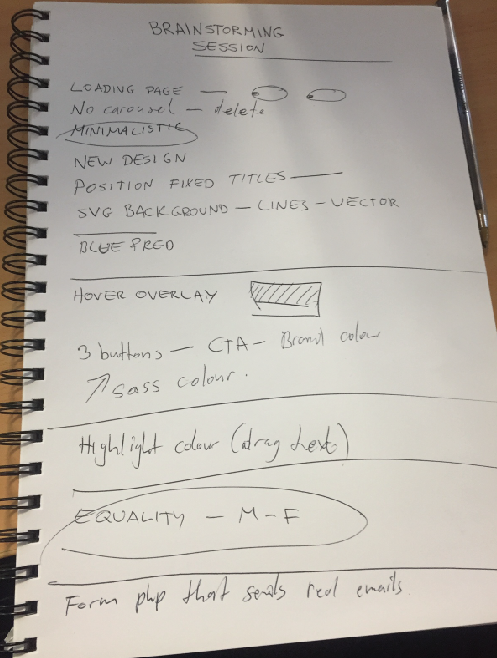 BRAINSTORMING
SESSION
LOADING PAGE —
No carousel — delete
MINIMALISTIC
NEW DESIGN
POSITION FIXED TITLES —
SVG BACKGROUND — LINES — VECTOR
HOVER OVERLAY
3 buttons — CTA — Brand colour
sass colour.
Highlight colour (drag text)
EQUALITY — M - F
Form php that sends real emails.